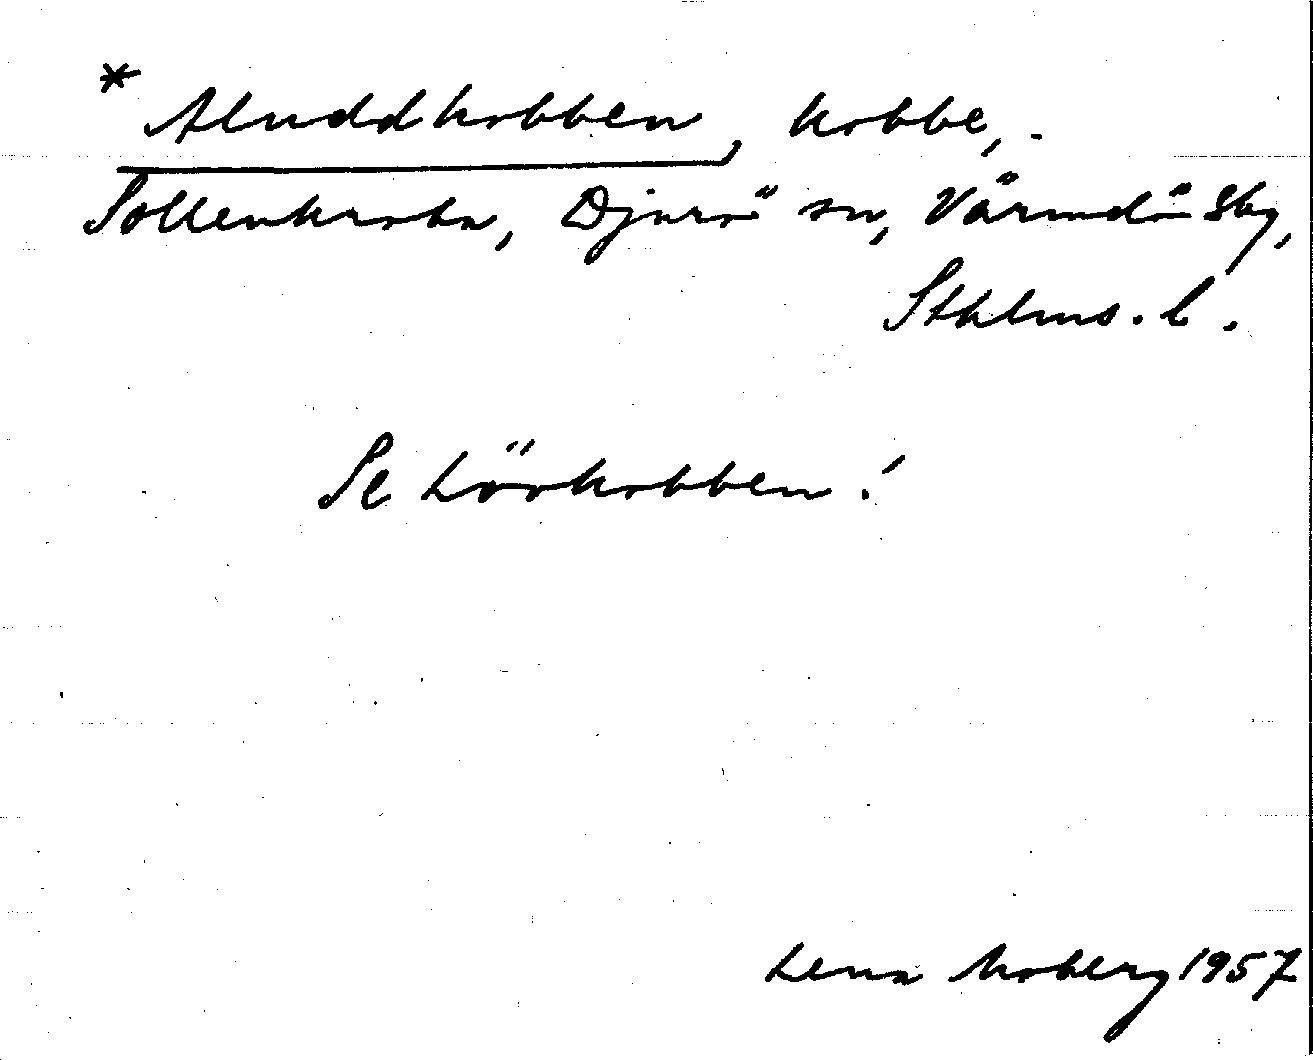 * Aluddkobben, kobbe,-
Sollenkroka, Djurö sn, Värmdö Skg,
Sthlms. l.
Se Lövkobben!
Lena Moberg 1957